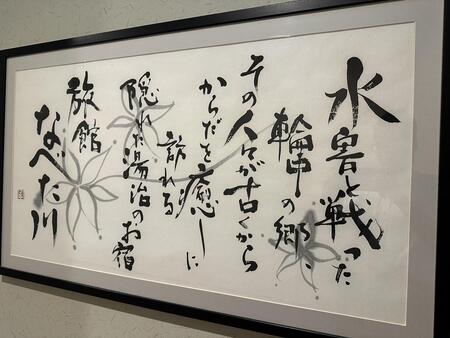 水害と戦った
輪中の郷、
その人々が古くから
からだを癒しに
訪れる
隠れ湯治のお宿
旅館
なべた川